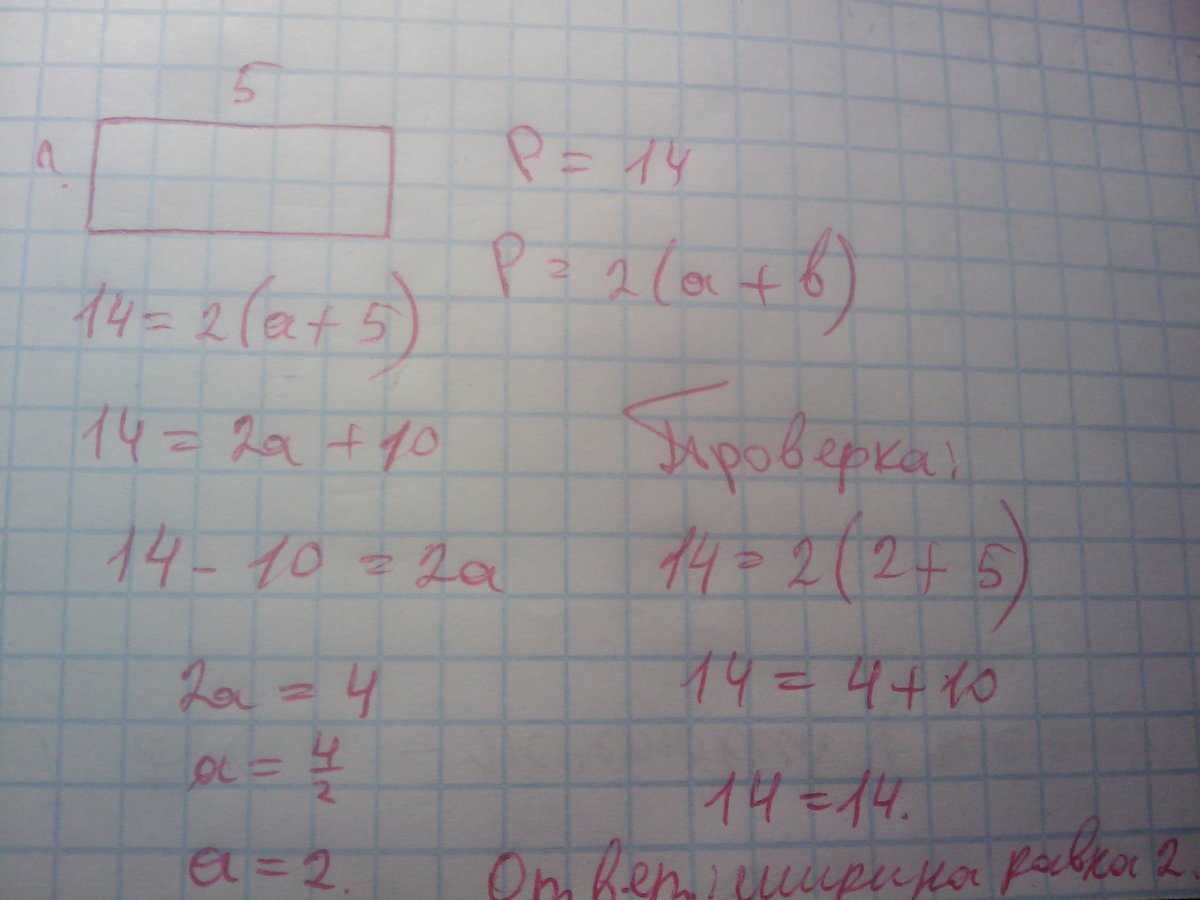 5
?
P = 14
P = 2(a + b)
14 = 2(a + 5)
14 = 2a + 10
14 - 10 = 2a
2a = 4
a = 4/2
a = 2.
Проверка:
14 = 2(2 + 5)
14 = 4 + 10
14 = 14.
Ответ: ширина равна 2.